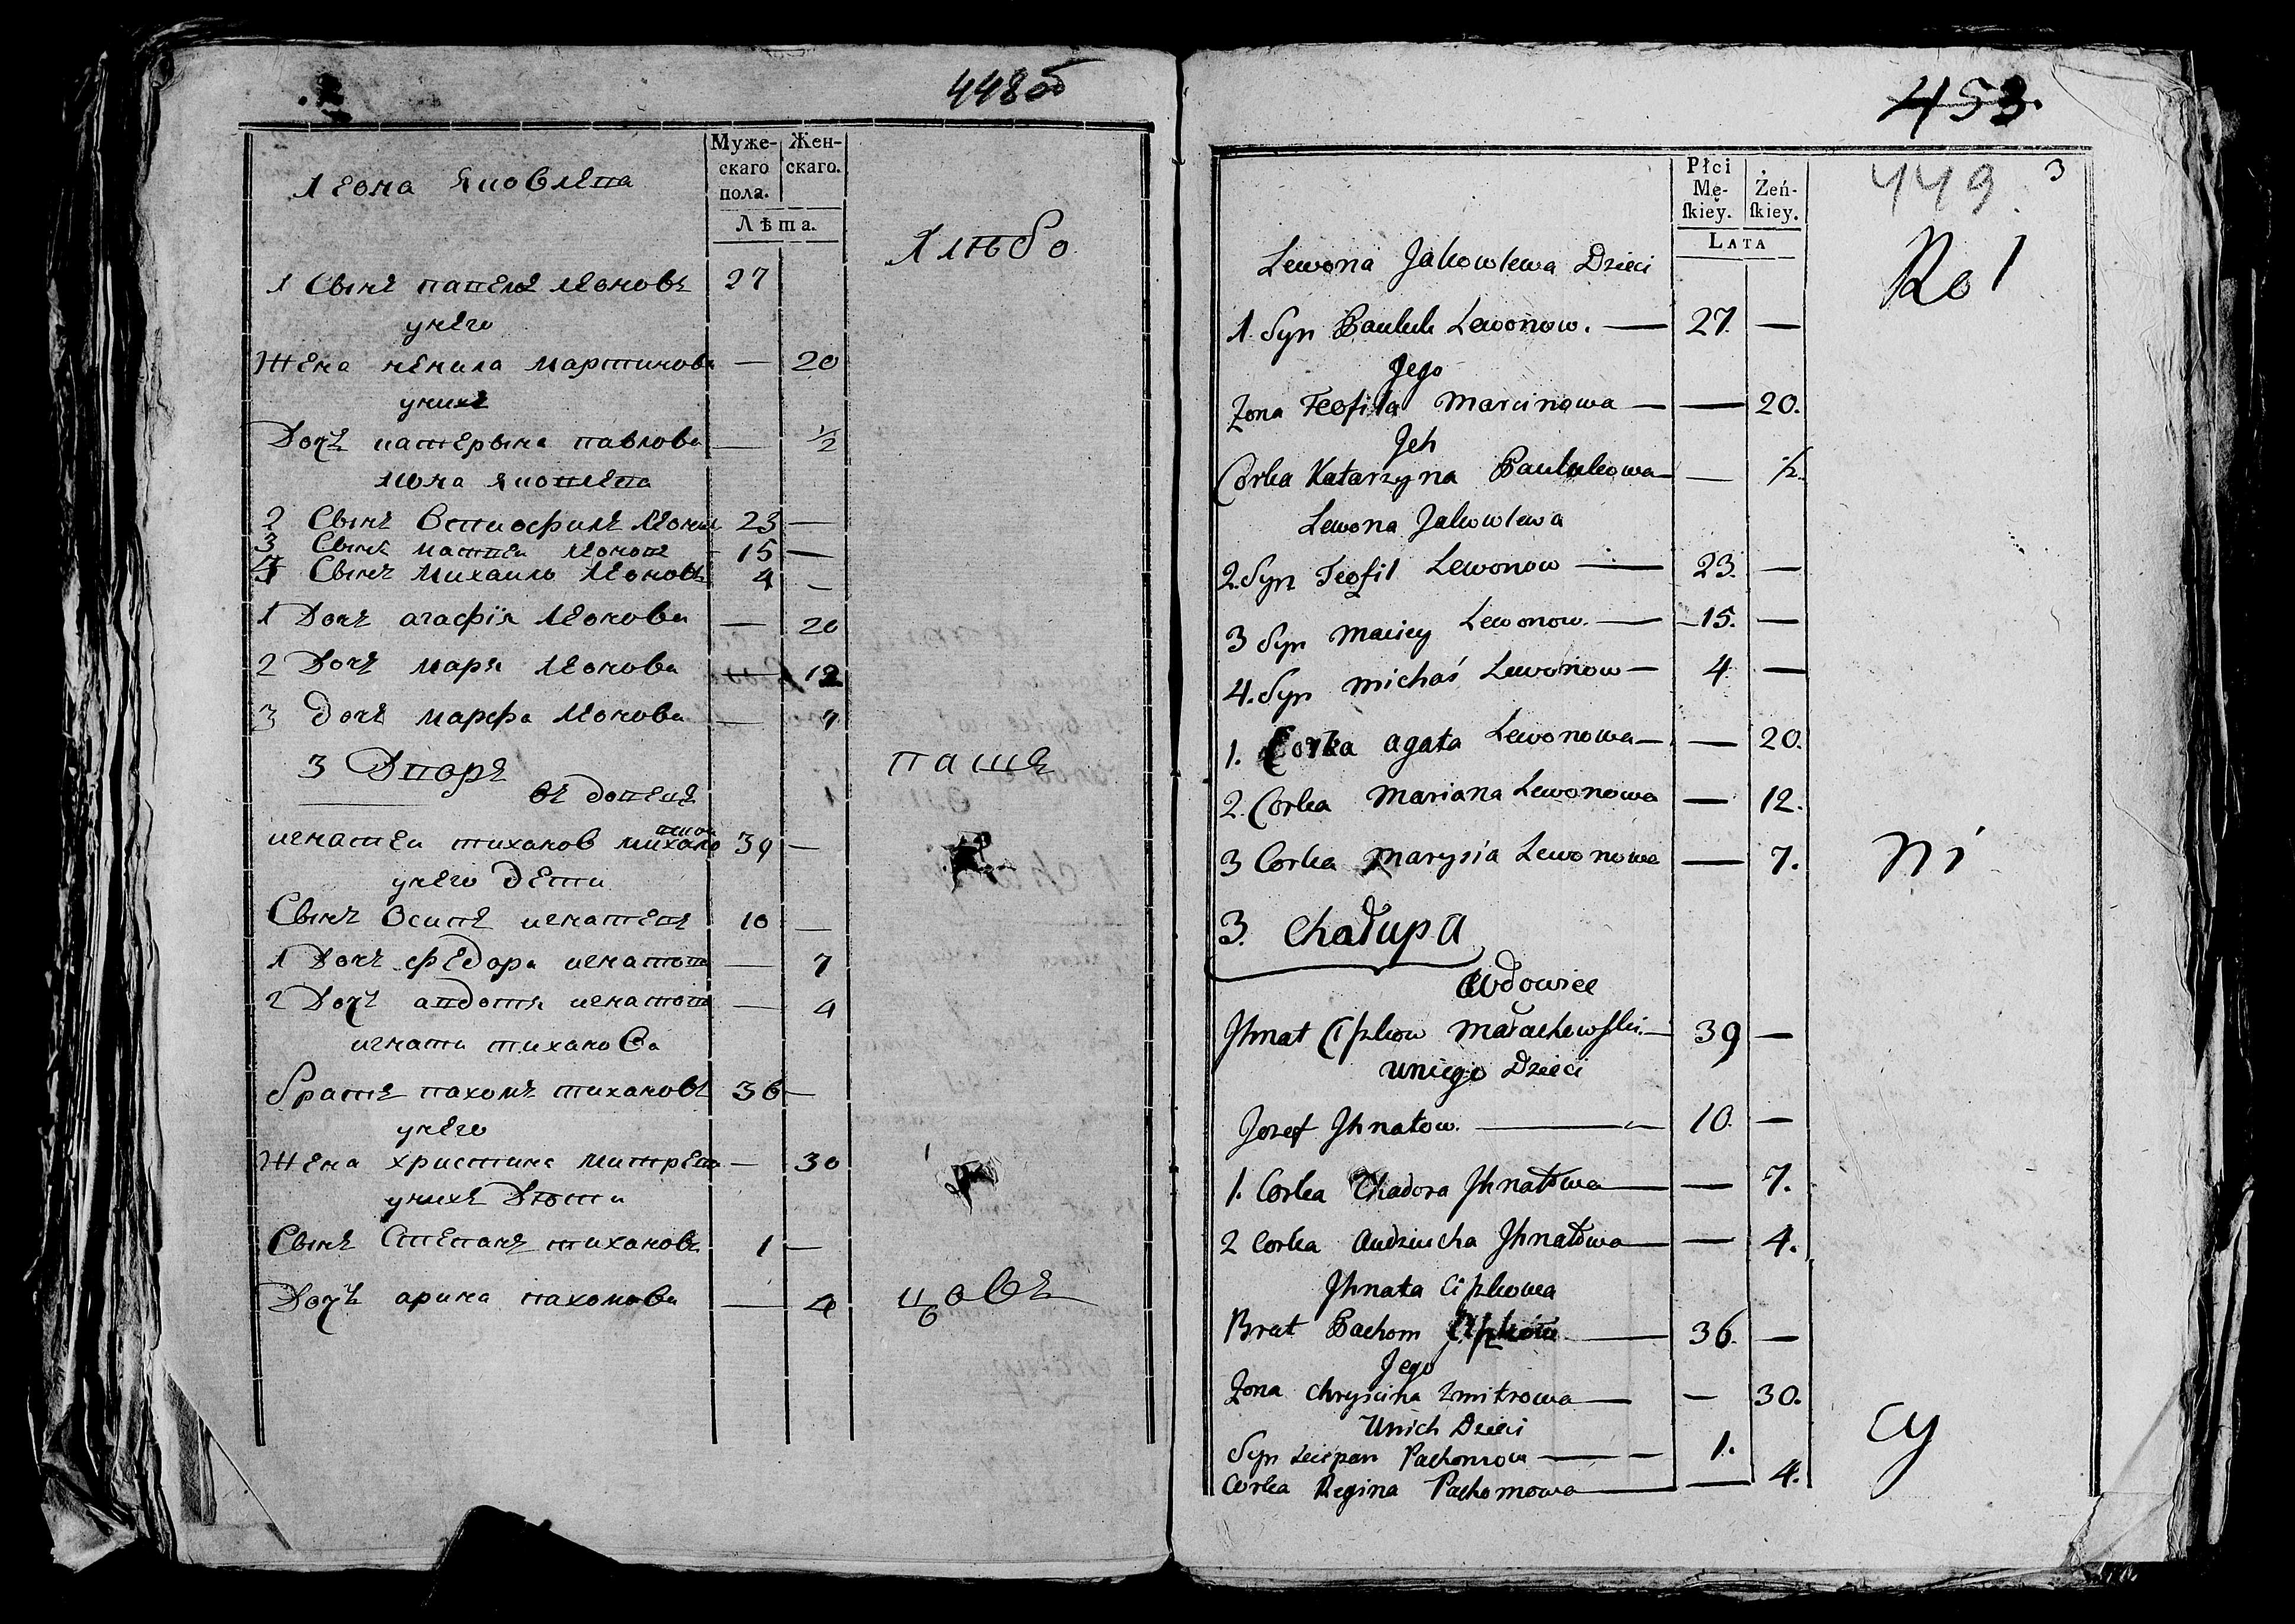 448об
Муже-
скаго
пола.
Жен-
скаго.
Лѣта.
леона яковлева
Хлѣбо
1 Сынъ павелъ леоновъ 27
унего
жена ненила мартинова — 20
унихъ
Дочъ катерына павлова — 1/2
леона яковлева
2 Сынъ леонов 23 —
3 Сынъ матвеи леоновъ 15 —
4 Сынъ михаило леоновъ 4 —
1 Дочъ агафія леонова — 20
2 Дочъ маря леонова — 12
3 дочъ марфа леонова — 7
3 Дворъ
пашъ
въ довецъ
игнатеи тиханов 39 —
унего дети
Сынъ Осипъ игнатевъ 10 —
1 Дочъ федора игнатова — 7
2 Дочъ авдотя игнатова — 4
игнати тиханова
братъ пахомъ тихановъ 36 —
унего
жена христина митрева — 30
унихъ Дѣти
Сынъ Степанъ тихановъ 1 —
Дочъ арина пахомова — 4
цовъ
6
453.
449.
3
Płci
Mę-
ſkiey.
Żeń-
ſkiey.
LATA
Rol
Lewona Jakowlewa Dzieci
1. Syn Pauluk Lewonow. — 27. —
Jego
Zona Teofila Marcinowa — — 20.
Jch
Corka Katarzyna Paulukowa — — 1/2.
Lewona Jakowlewa
2. Syn Teofil Lewonow — 23. —
3 Syn Maciey Lewonow. — 15. —
4. Syn Michaś Lewonow — 4 —
1. Corka Agata Lewonowa — — 20.
2. Corka Mariana Lewonowa — 12.
3 Corka Marysia Lewonowa — 7.
ni
3. Chałupa
Wdowiec
Jhnat Cipkow Małachowſki — 39 —
uniego Dzieci
Jozef Jhnatow. — 10. —
1. Corka Chadora Jhnatowa — — 7.
2 Corka Audziucha Jhnatowa — — 4.
Jhnata Cipkowa
Brat Pachom Cipkow — 36. —
Jego
Zona Chryscina Zmitrowa — — 30.
Unich Dzieci
cy
Syn Sciepan Pachomow — 1.
Corka Regina Pachomowa — — 4.